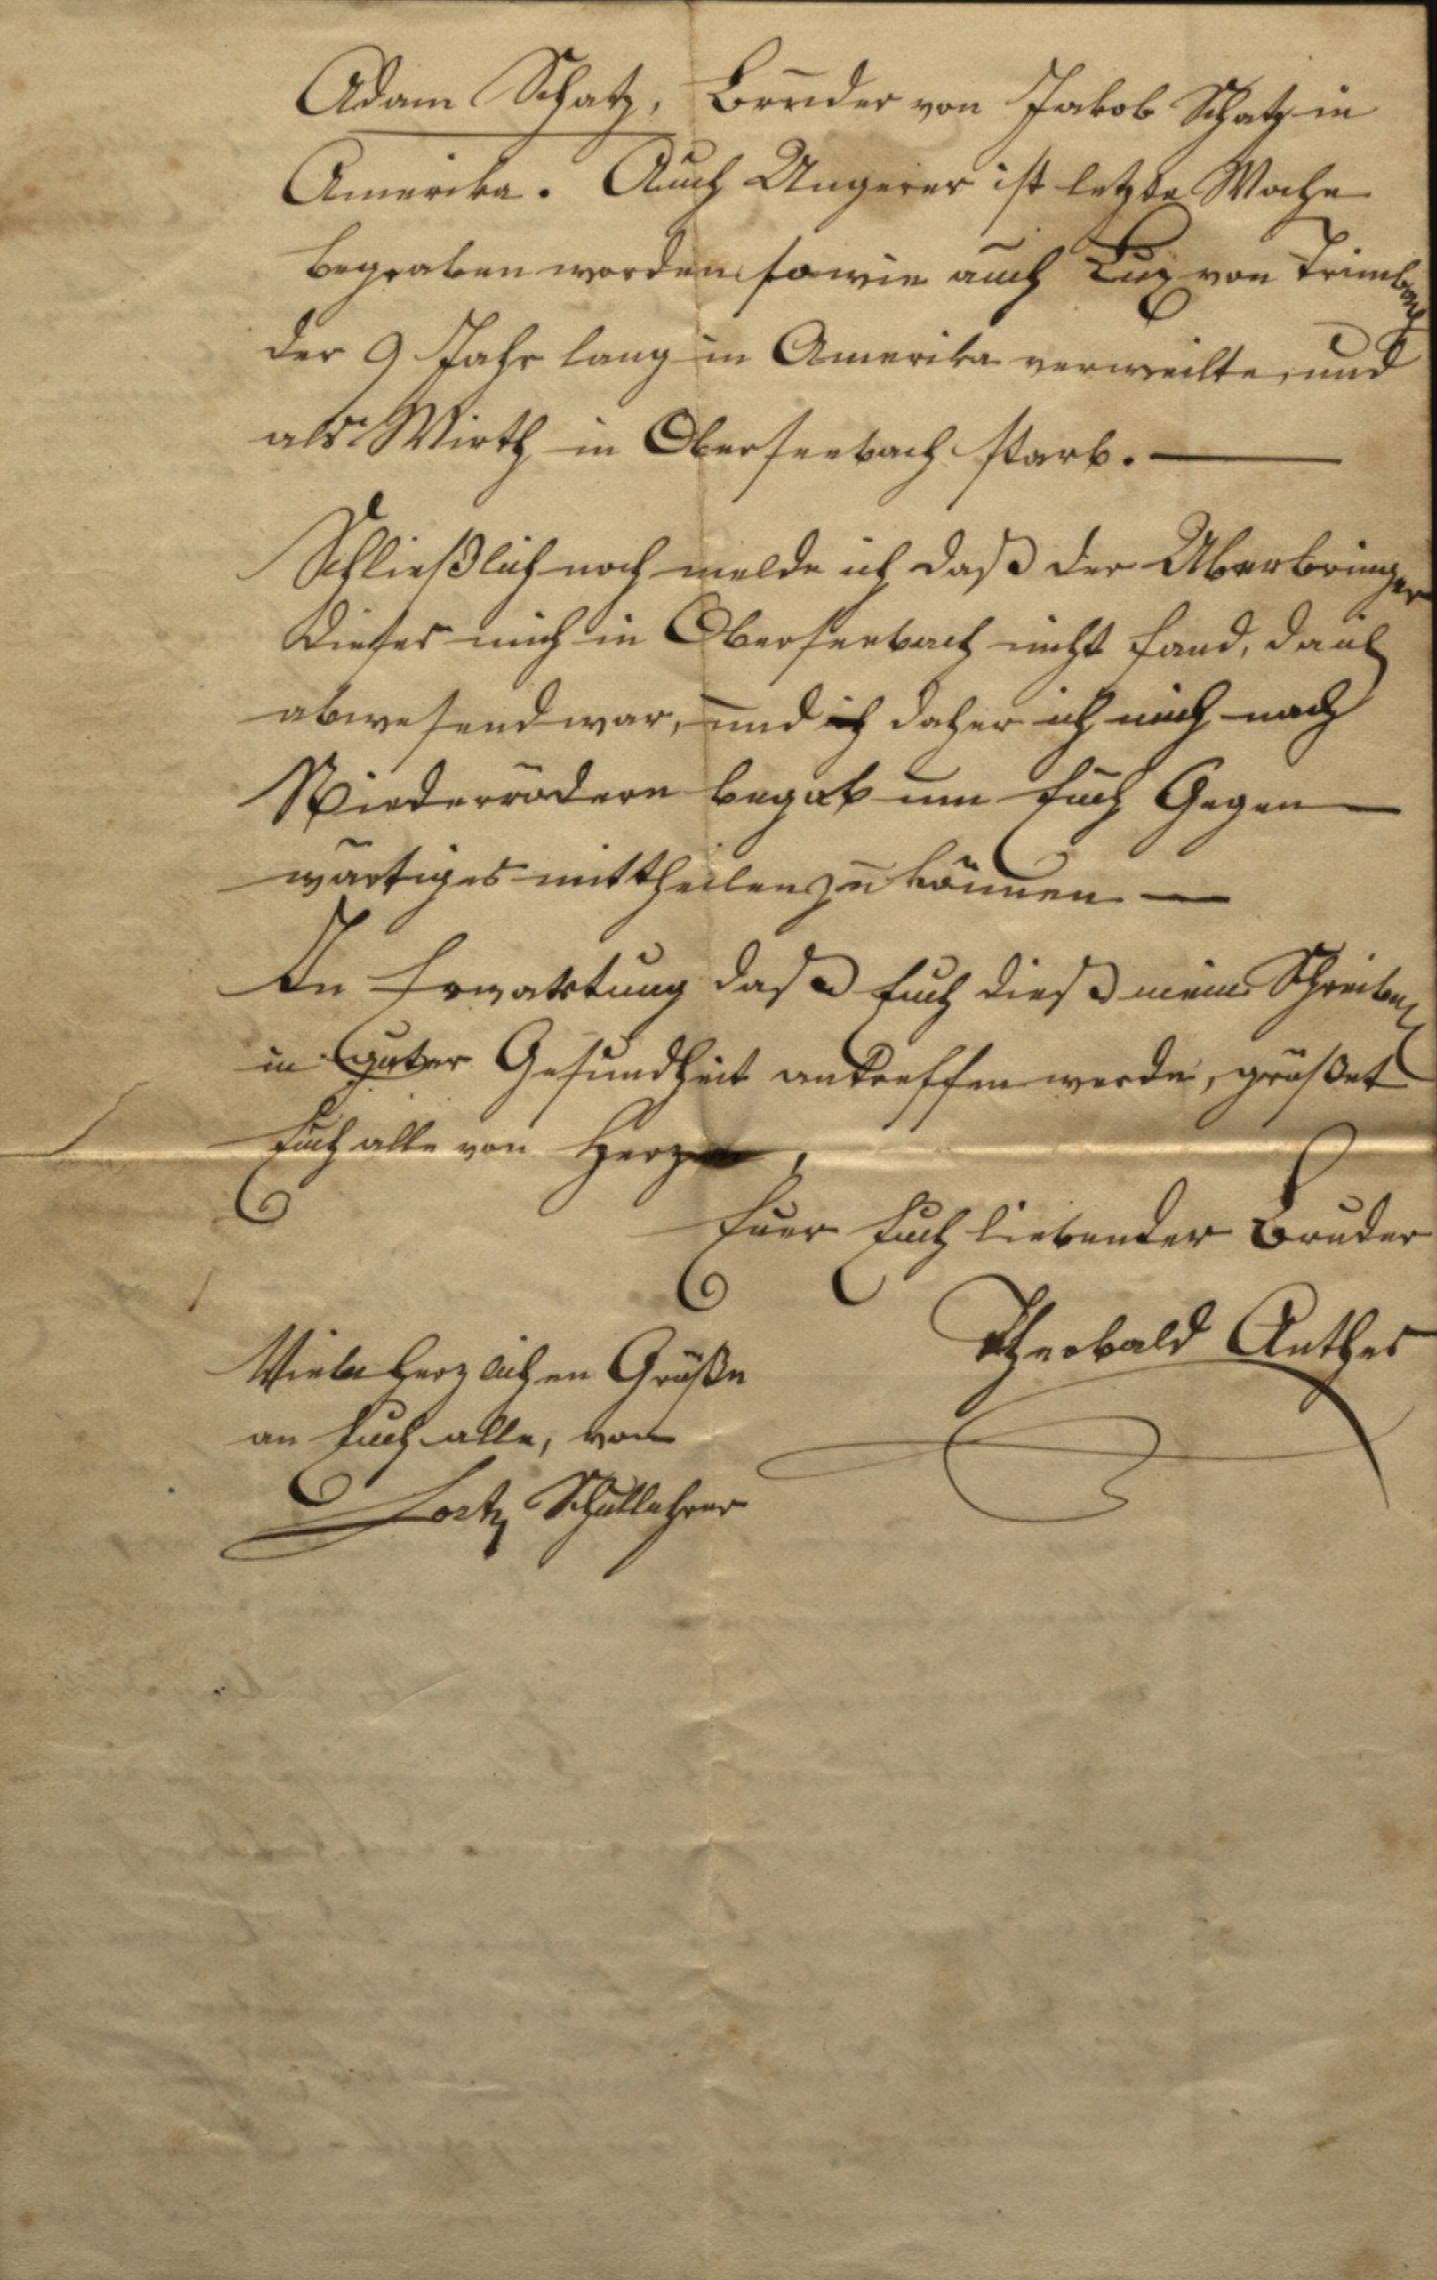 Adam Schatz, Bruder von Jakob Schatz in
Amerika. Auch Ungerer ist letzte Woche
begraben worden sowie auch Lux von Trimbach
der 9 Jahr lang in Amerika verweilte, und
als Wirth in Oberseebach starb. —
Schließlich noch melde ich daß der Überbringer
dieses mich in Oberseebach nicht fand, da ich
abwesend war, und ich daher ich mich nach
Niederrödern begab um Euch Gegen—
wärtiges mittheilen zu können —
In Erwartung daß Euch dieß mein Schreiben
in guter Gesundheit antreffen werde, grüßet
Euch alle von Herzen,
Euer Euch liebender Bruder
Theobald Anthes
Viele herzlichen Grüße
an Euch alle, von
Lortz Schullehrer